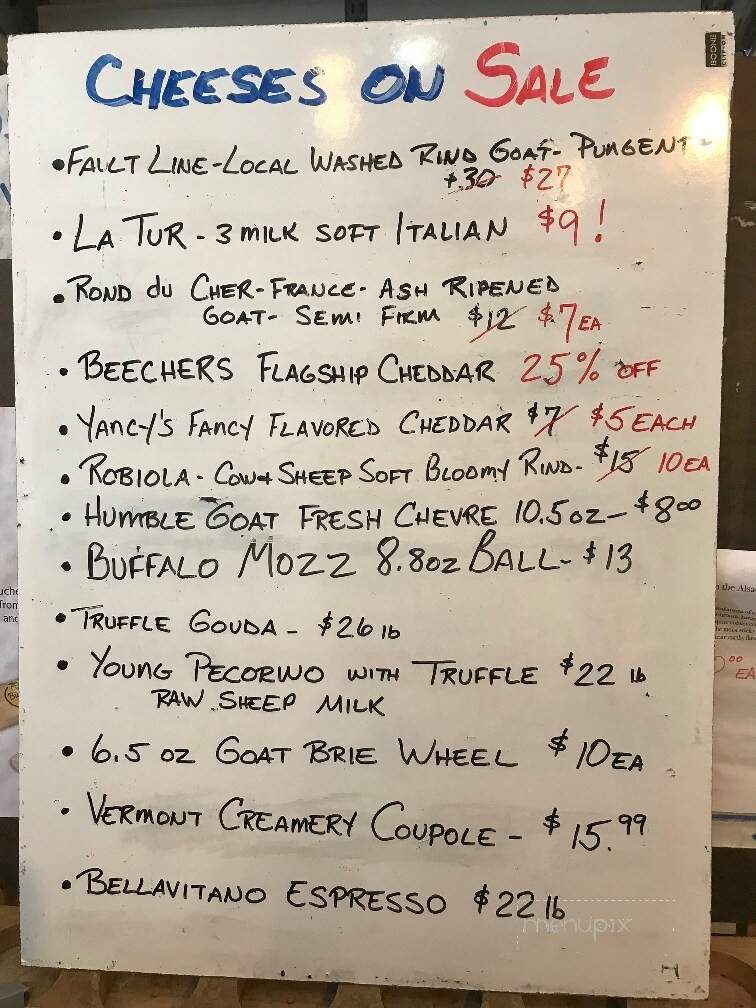 CHEESES ON SALE
• FAULT LINE-LOCAL WASHED RIND GOAT- PUNGENT-
$30 $27
• LA TUR - 3 MILK SOFT ITALIAN $9!
• ROND du CHER-FRANCE- ASH RIPENED
GOAT- SEMI FIRM $12 $7 EA
• BEECHERS FLAGSHIP CHEDDAR 25% OFF
• YANCY'S FANCY FLAVORED CHEDDAR $7 $5 EACH
• ROBIOLA - COW & SHEEP SOFT BLOOMY RIND- $15 10 EA
• HUMBLE GOAT FRESH CHEVRE 10.5 oz - $8.00
• BUFFALO MOZZ 8.8oz BALL- $13
• TRUFFLE GOUDA - $26 lb
• YOUNG PECORINO WITH TRUFFLE $22 lb
RAW SHEEP MILK
• 6.5 OZ GOAT BRIE WHEEL $10 EA
• VERMONT CREAMERY COUPOLE - $15.99
• BELLAVITANO ESPRESSO $22 lb
menupix
BOONE
the Alsa
00
EA
from
and